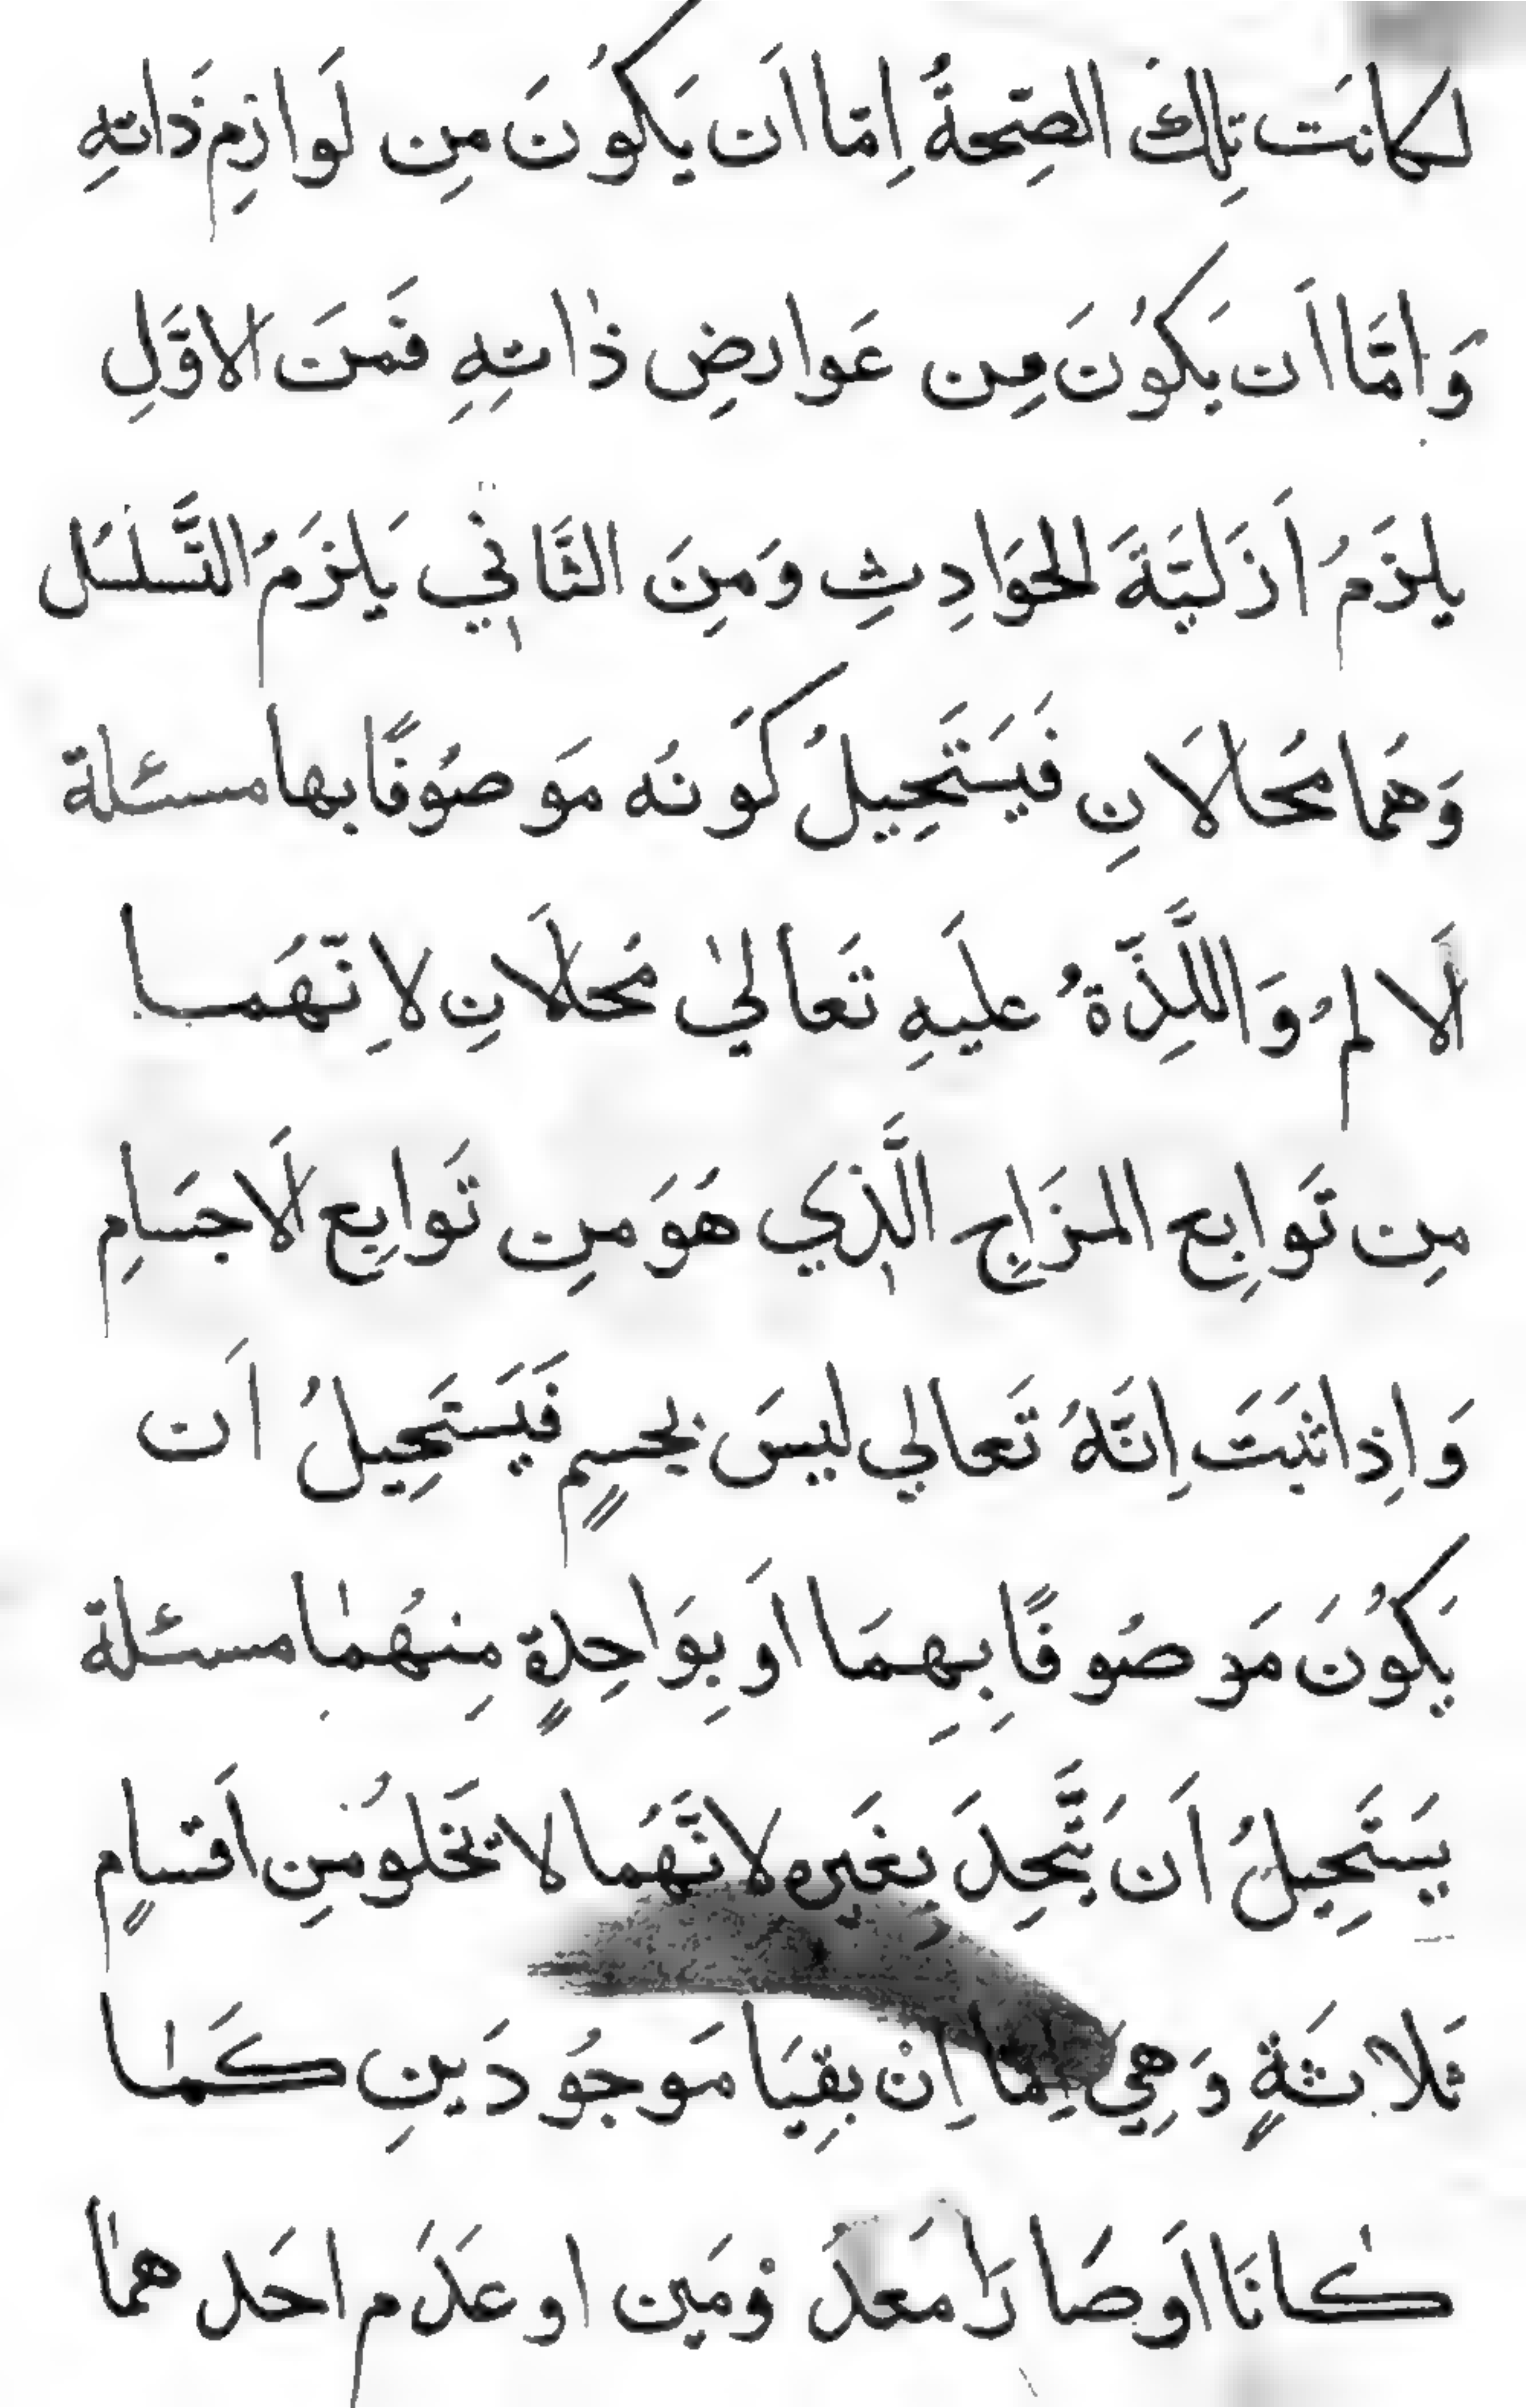 لكانَت تِلكَ الصِّحةُ اِمّا اَن يَكوُنَ مِن لَوازِمِ ذَاتهِ
وَاِمَّا اَن يَكوُنَ مِن عَوارضِ ذاتِهِ فَمنَ الاوَّلِ
يلزَمُ اَزَليَّةَ الحوَادِثِ وَمِنَ الثَّانِي يَلزَمُ التَّسلسُل
وَهُما مُحالَانِ فَيَستَحِيلُ كَونُه مَوصُوفًا بها مسئلة
اَلالمُ وَاللَّذِّةُ عليهِ تَعالىٰ مُحالَانِ لاِنّهَمـا
مِن تَوابِع المزَاجِ الَّذِي هَوَ مِن تَوابِع الَاجسَامِ
وَاِذا ثبَتَ اِنَّهُ تَعالي ليسَ بجسمٍ فَيَستَحِيلُ اَن
يَكوُنَ مَوصُوفًا بِهِمَا اَو بِوَاحِدةٍ مِنهُمٰا مسئلة
يَستَحِيلُ اَن يَتَّحِدَ بِغَيرِه لانَّهَمُا لا تخَلوُ مِن اَقسامٍ
ثَلاثَةٍ وَهِيَ اِمّا اِنْ بقِيَا مَوجوُدَينِ كَمٰا
كٰانَا اَو صَارَا مَعدُومَين او عدَم احَدهمٰا